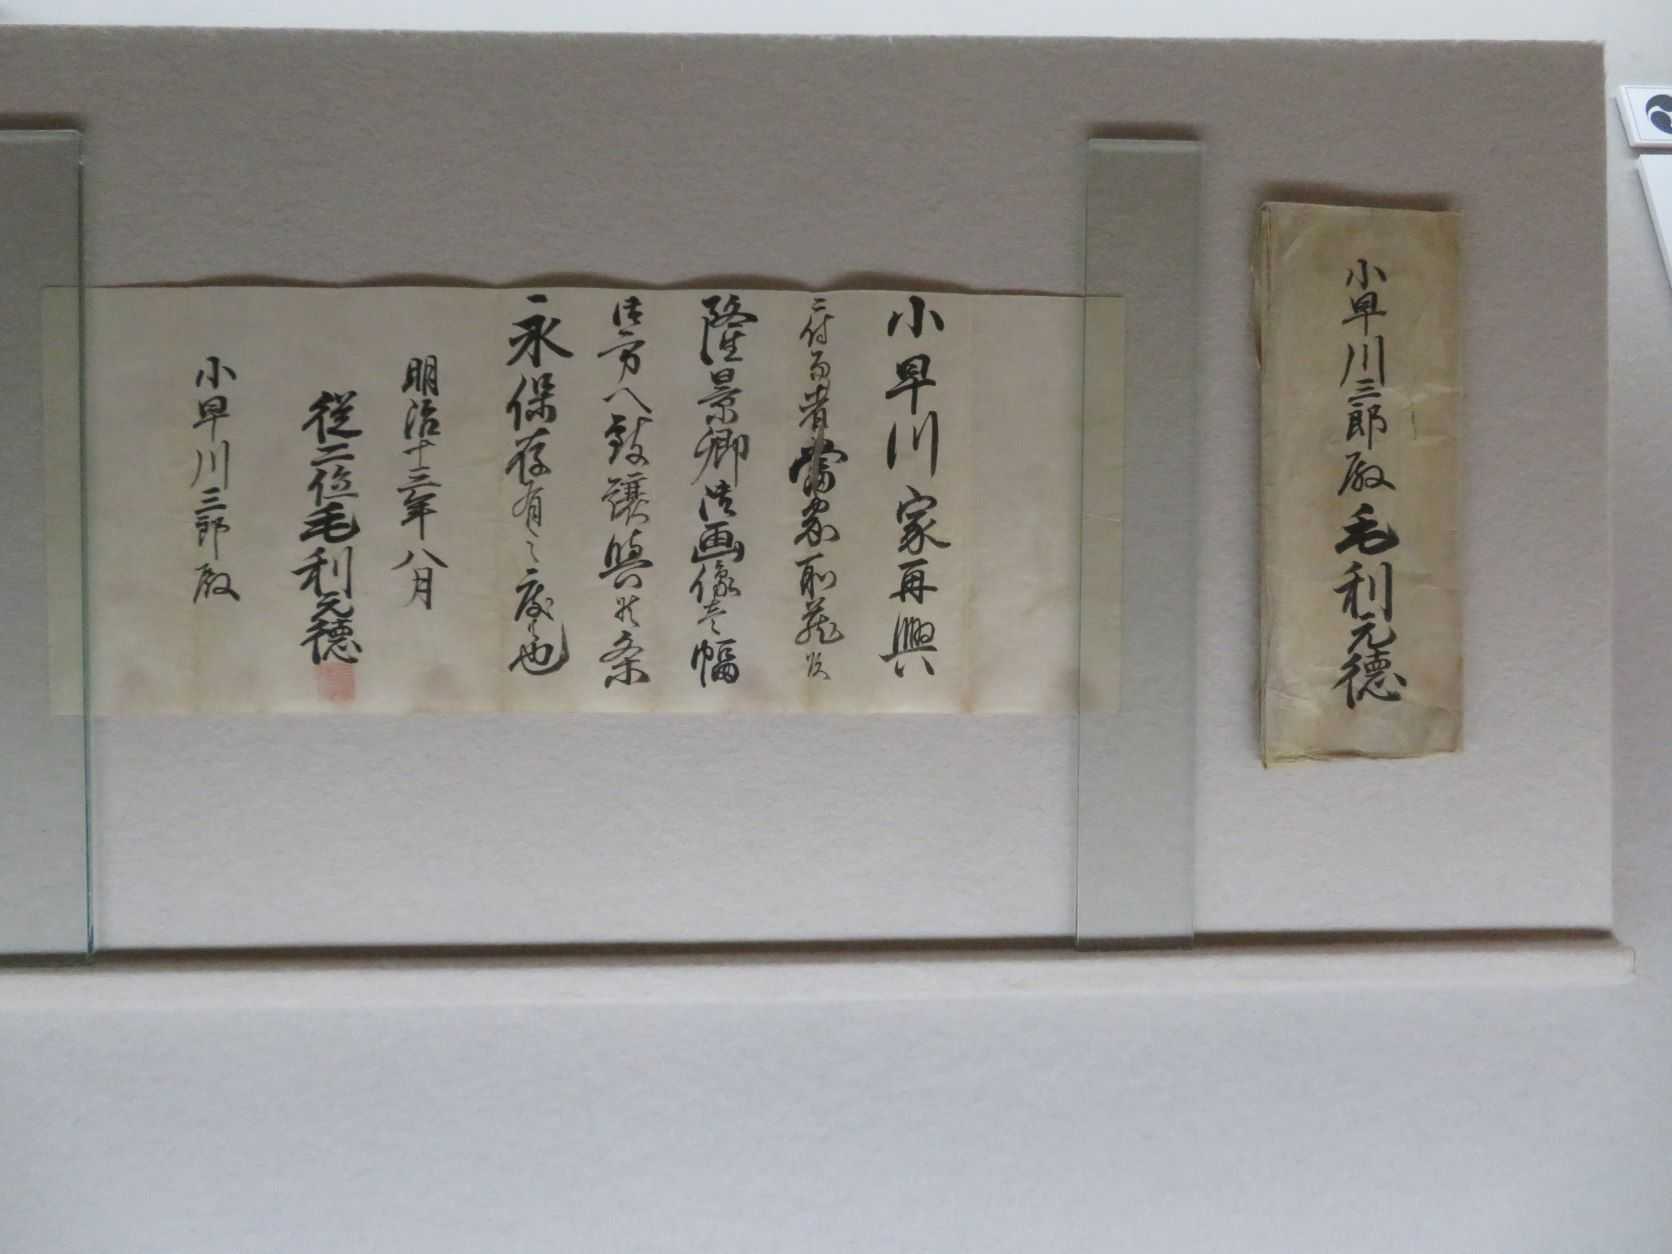 小早川三郎殿 毛利元徳
小早川家再興
ニ付而者當家所蔵
隆景卿御画像壱幅
其方へ致譲與候条
永保存有之度候也
明治十三年八月
従二位毛利元徳
小早川三郎殿